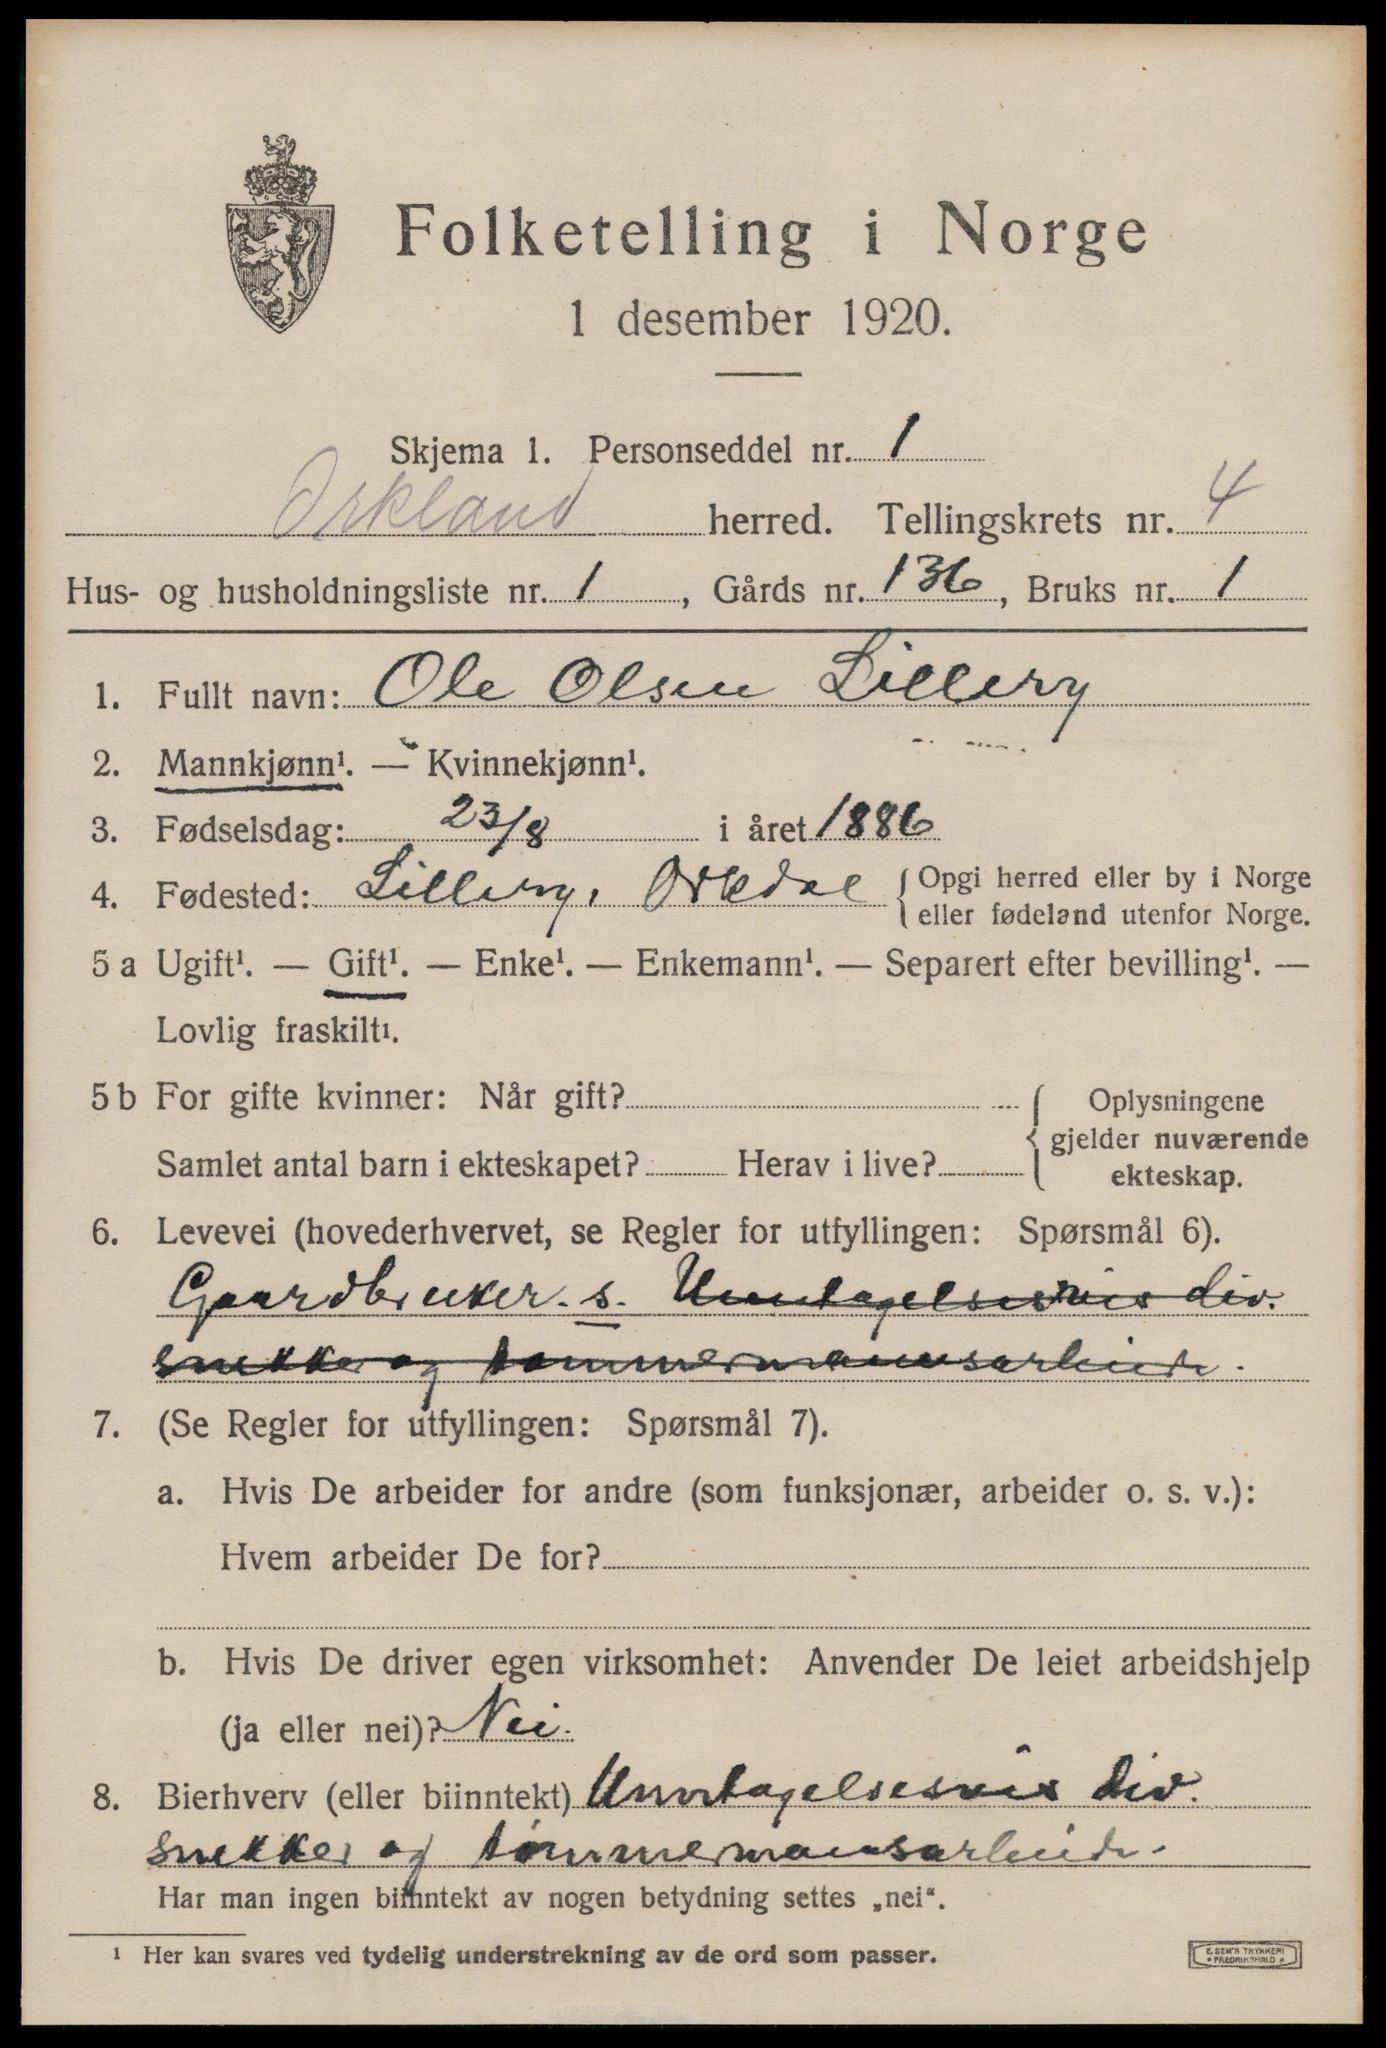 Folketelling i Norge
1 desember 1920.
Skjema 1. Personseddel nr. 1
Orkland herred. Tellingskrets nr. 4
Hus- og husholdningsliste nr. 1, Gårds nr. 136, Bruks nr. 1
1. Fullt navn: Ole Olsen Lillery
2. Mannkjønn¹. — Kvinnekjønn¹.
3. Fødselsdag: 23/8 i året 1886
4. Fødested: Lillery, Orkdal { Opgi herred eller by i Norge
eller fødeland utenfor Norge.
5 a Ugift¹. — Gift¹. — Enke¹. — Enkemann¹. — Separert efter bevilling¹. —
Lovlig fraskilt¹.
5 b For gifte kvinner: Når gift? { Oplysningene
gjelder nuværende
Samlet antal barn i ekteskapet? Herav i live? ekteskap.
6. Levevei (hovederhvervet, se Regler for utfyllingen: Spørsmål 6).
Gaardbruker. s. Unntagelsesvis div.
snekker og tømmermannsarbeide.
7. (Se Regler for utfyllingen: Spørsmål 7).
a. Hvis De arbeider for andre (som funksjonær, arbeider o. s. v.):
Hvem arbeider De for?
b. Hvis De driver egen virksomhet: Anvender De leiet arbeidshjelp
(ja eller nei)? Nei.
8. Bierhverv (eller biinntekt) Unntagelsesvis div.
snekker og tømmermannsarbeide.
Har man ingen biinntekt av nogen betydning settes „nei“.
¹ Her kan svares ved tydelig understrekning av de ord som passer.
E. SEM'S TRYKKERI
* FREDRIKSHALD *